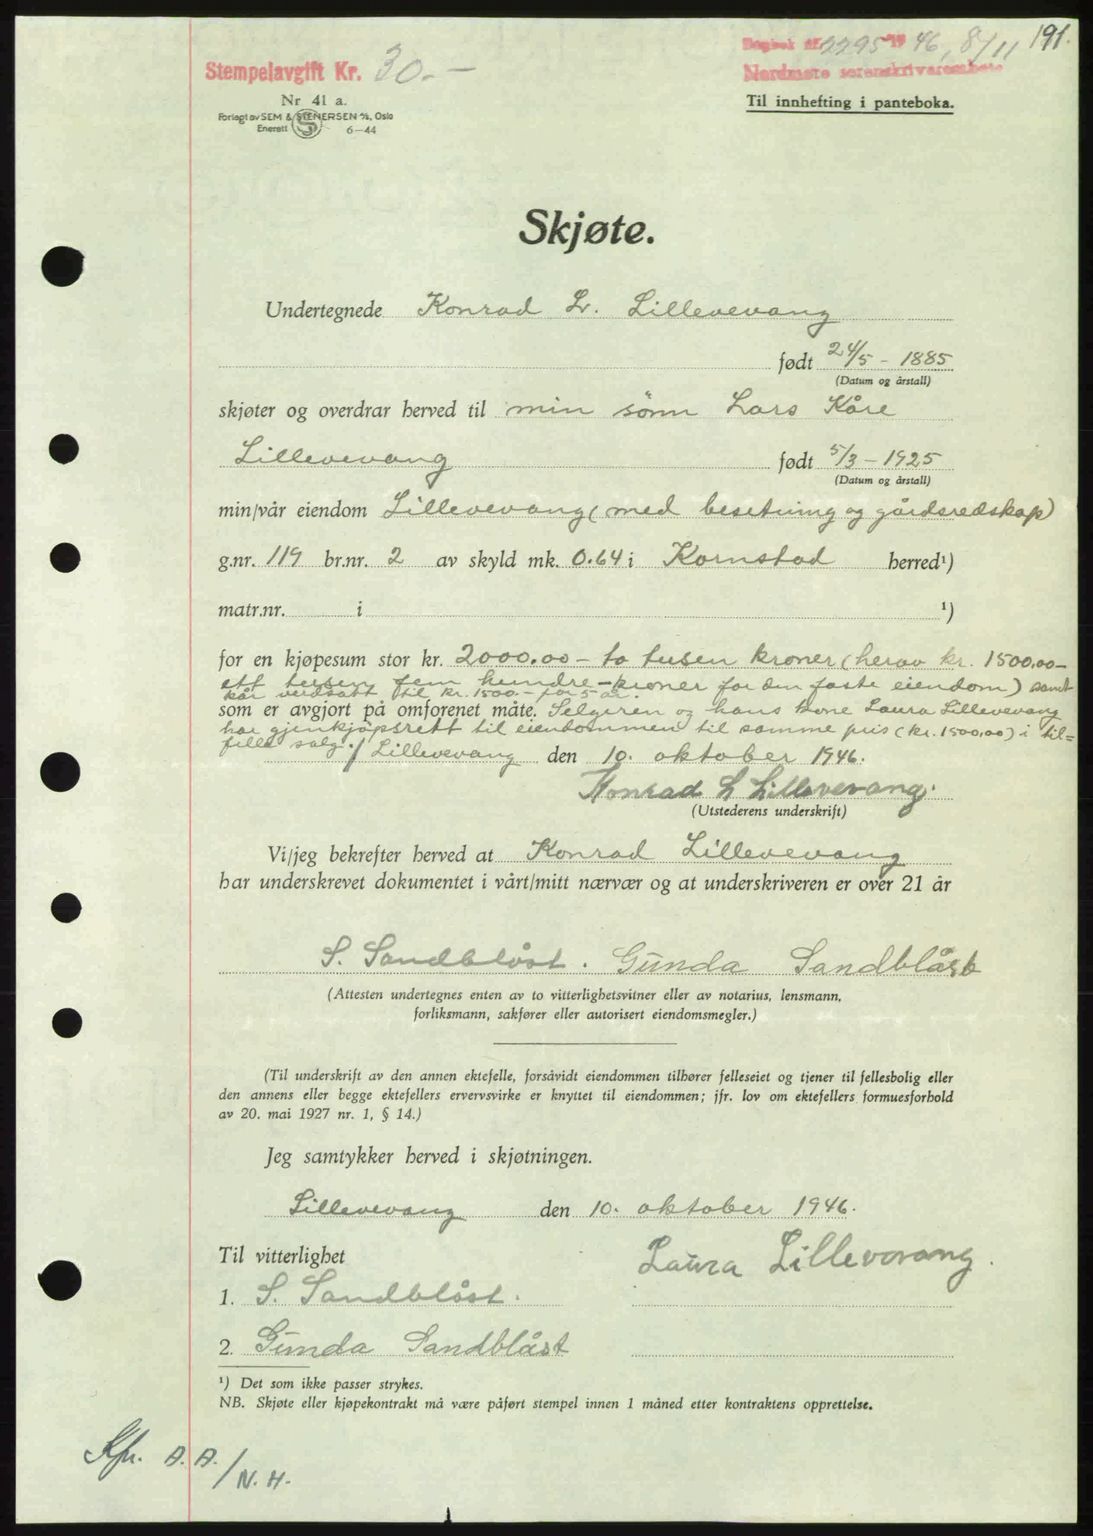 191.
Dagbok nr. 2295 19 46, 8/11
Stempelavgift Kr. 30.—
Nordmøre sorenskriverembete
Nr 41 a.
Til innhefting i panteboka.
Forlagt av SEM & STENERSEN A/S, Oslo
Enerett S 6-44
Skjøte.
Undertegnede Konrad Lr. Lillevevang
født 24/5 - 1885
(Datum og årstall)
skjøter og overdrar herved til min sønn Lars Kåre
Lillevevang født 5/3 - 1925
(Datum og årstall)
min/vår eiendom Lillevevang (med besetning og gårdsredskap)
g.nr. 119 br.nr. 2 av skyld mk. 0.64 i Kornstad herred¹)
matr.nr. i ¹)
for en kjøpesum stor kr. 2000.00 - to tusen kroner (herav kr. 1500.00 -
ett tusen fem hundre - kroner for den faste eiendom) samt
kår verdsatt til kr. 1500.- for 5 år.
som er avgjort på omforenet måte. Selgeren og hans kone Laura Lillevevang
har gjenkjøpsrett til eiendommen til samme pris (kr. 1500.00) i til=
felle salg. / Lillevevang den 10. oktober 1946.
Konrad L Lillevevang.
(Utstederens underskrift)
Vi/jeg bekrefter herved at Konrad Lillevevang
har underskrevet dokumentet i vårt/mitt nærvær og at underskriveren er over 21 år
S. Sandblåst. Gunda Sandblåst
(Attesten undertegnes enten av to vitterlighetsvitner eller av notarius, lensmann,
forliksmann, sakfører eller autorisert eiendomsmegler.)
(Til underskrift av den annen ektefelle, forsåvidt eiendommen tilhører felleseiet og tjener til fellesbolig eller
den annens eller begge ektefellers ervervsvirke er knyttet til eiendommen; jfr. lov om ektefellers formuesforhold
av 20. mai 1927 nr. 1, § 14.)
Jeg samtykker herved i skjøtningen.
Lillevevang den 10. oktober 1946.
Til vitterlighet Laura Lillevevang.
1. S. Sandblåst.
2. Gunda Sandblåst
¹) Det som ikke passer strykes.
NB. Skjøte eller kjøpekontrakt må være påført stempel innen 1 måned etter kontraktens opprettelse.
Kfr. A. A. / N. H.